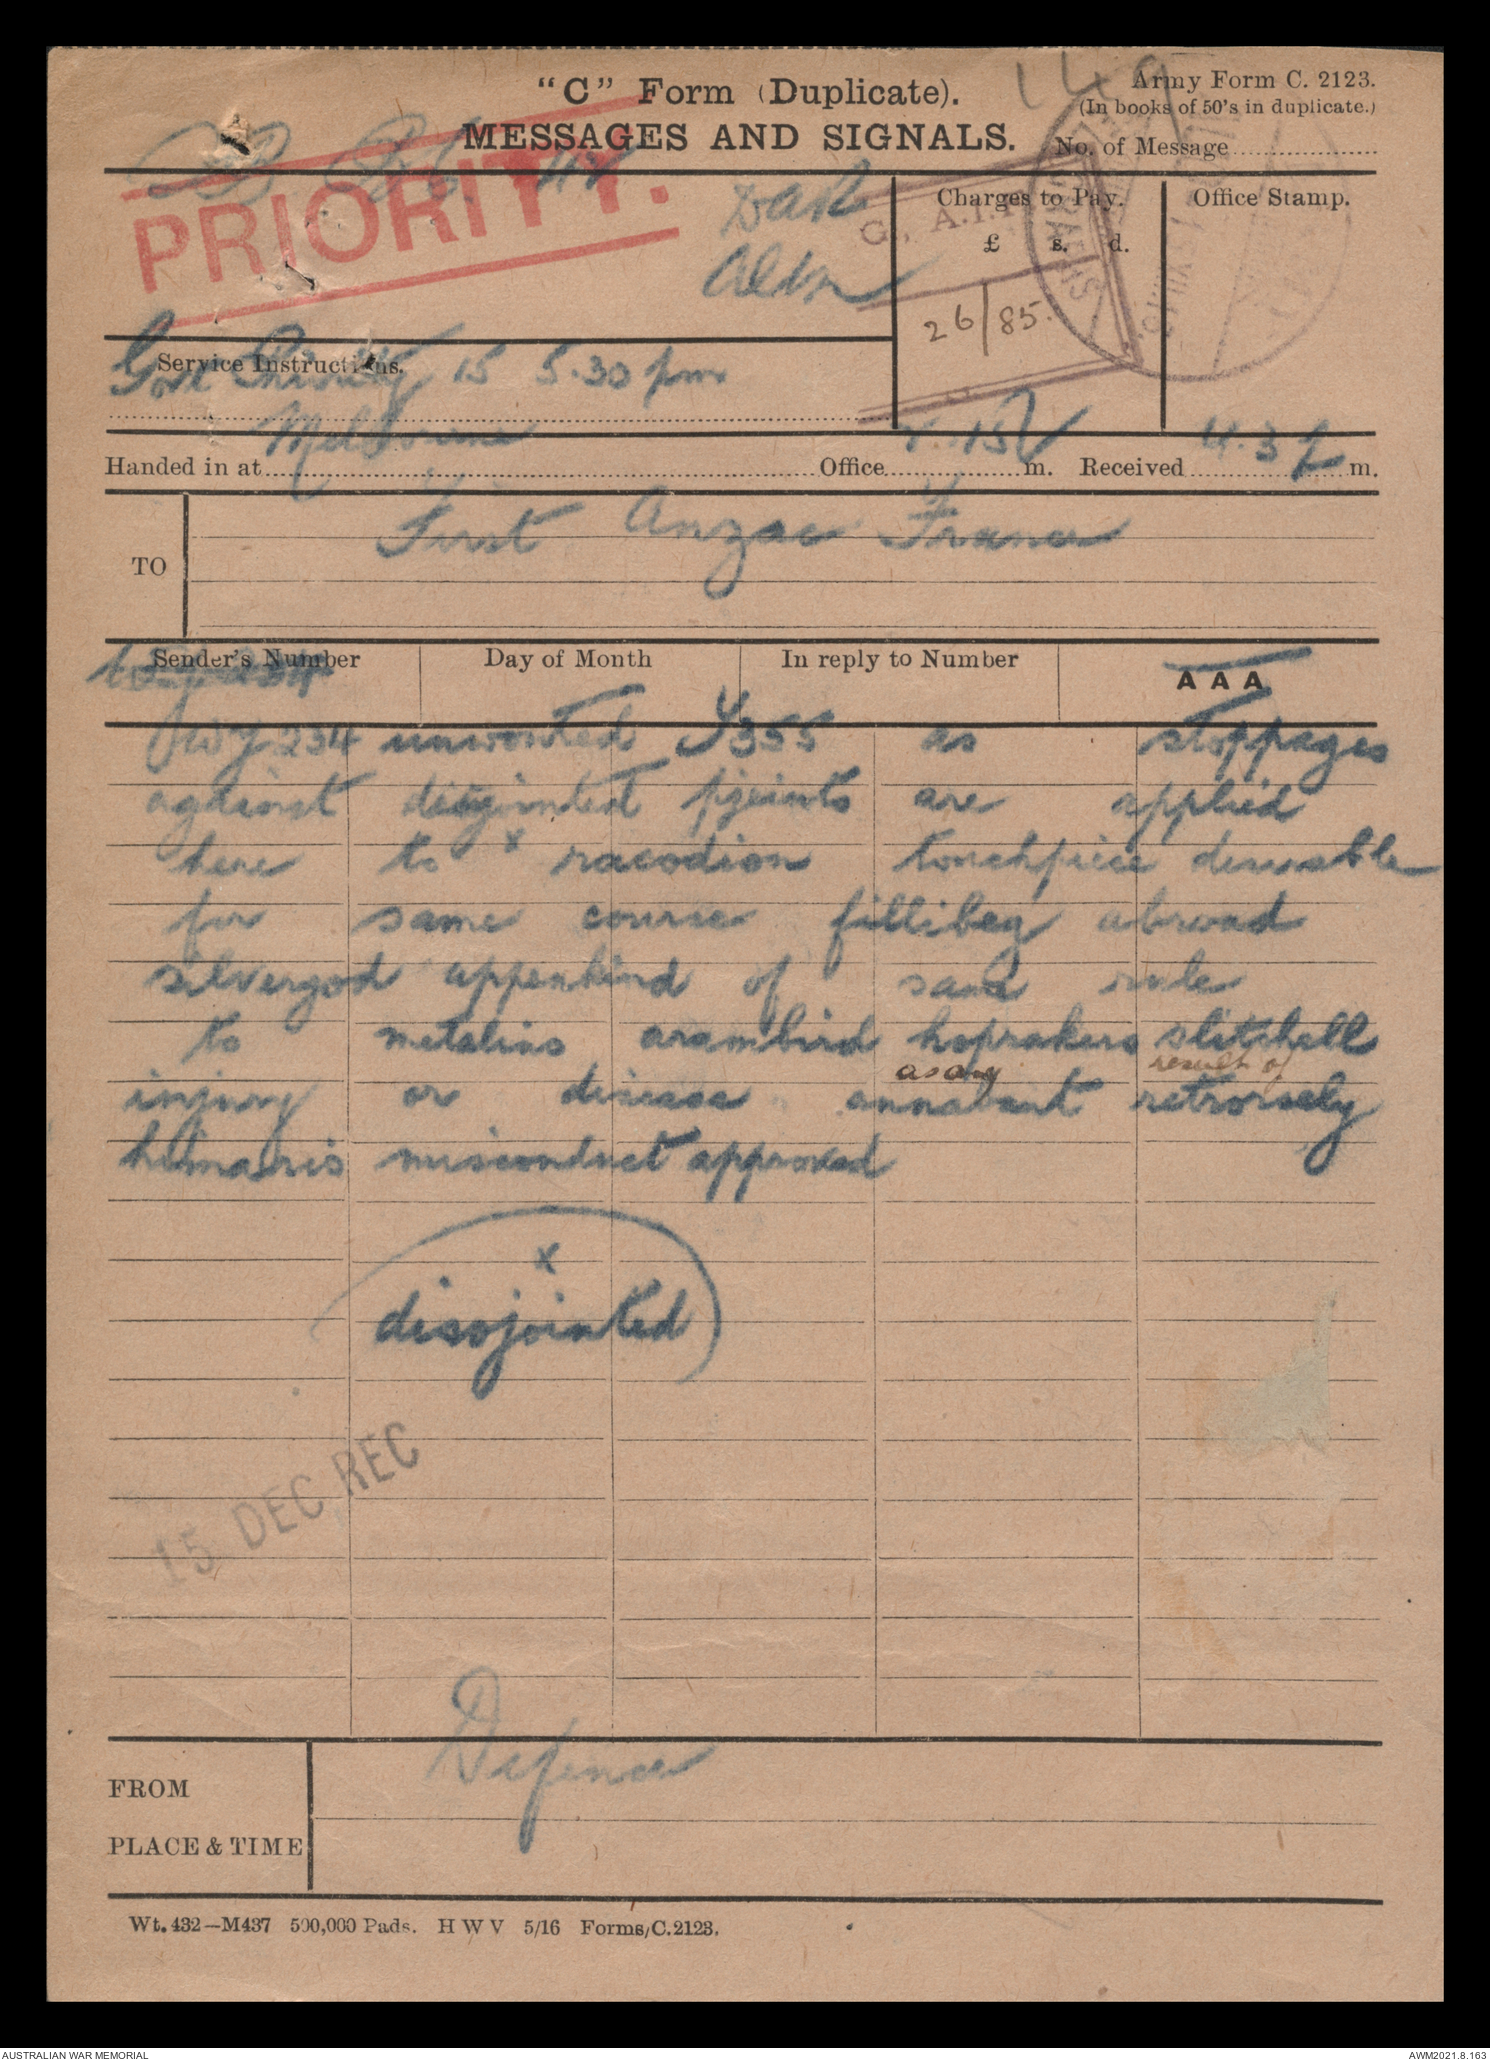 "C" Form (Duplicate).
Army Form C. 2123.
(In books of 50's in duplicate.)
MESSAGES AND SIGNALS.
No. of Message
PRIORITY.
Charges to Pay.
£ s. d.
Office Stamp.
26/85.
Service Instructions.
Govt Priority 15 5.30 pm
Handed in at Melbourne Office m. Received m.
TO
First Anzac France
Sender's Number
Day of Month
In reply to Number
AAA
WJ 234 unwonted Y355 as stoppages
against disjointed are applied
here to x racodion touchpiece desirable
for same course fillibeg abroad
silvergod appenkind of same rule
to metalins arambird hoprakers slitshell
as any result of
injury or disease annabant retrorsely
himaris misconduct approved
x
disojointed
15 DEC REC
FROM
Defence
PLACE & TIME
Wt. 432—M437 500,000 Pads. H W V 5/16 Forms/C.2123.
AUSTRALIAN WAR MEMORIAL
AWM2021.8.163